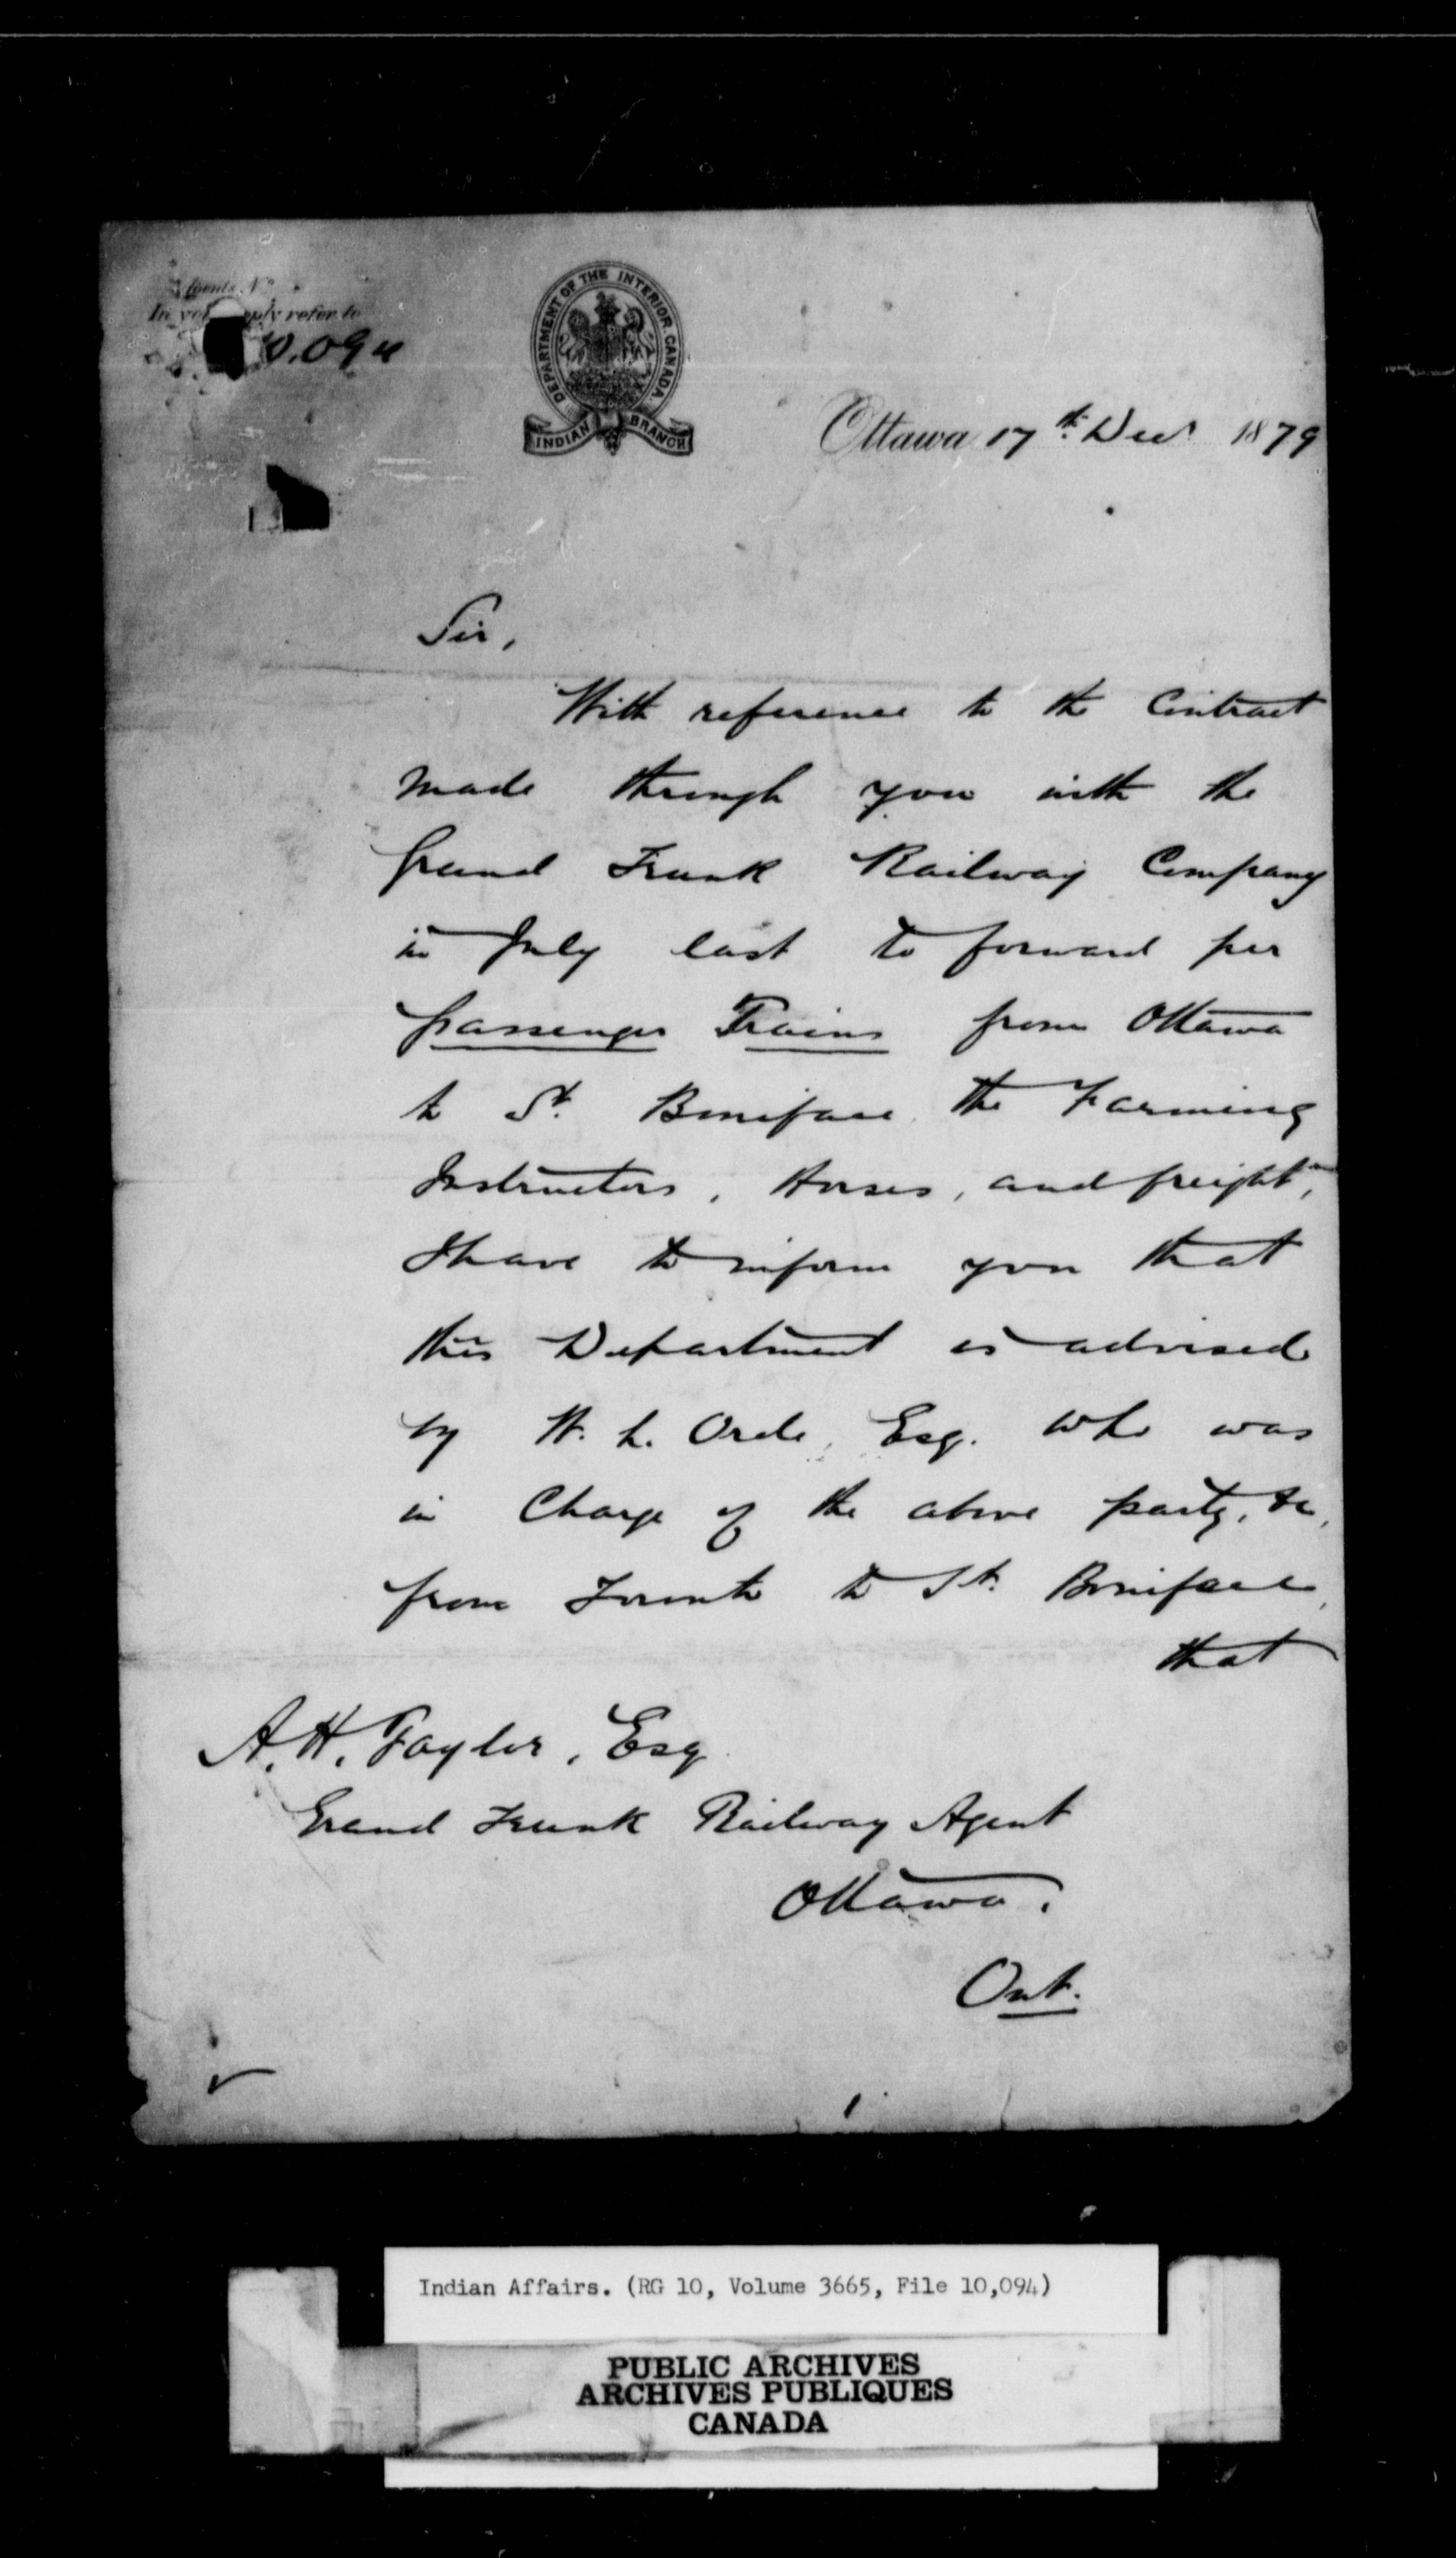 In yo ply refer to
0.094
DEPARTMENT OF THE INTERIOR CANADA
INDIAN BRANCH
Ottawa 17th Decr 1879
Sir,
With reference to the Contract
made through you with the
Grand Trunk Railway Company
in July last to forward per
passenger Trains from Ottawa
to St. Boniface the Farming
Instructors, Horses, and freight,
I have to inform you that
this Department is advised
by W. L. Orde, Esq. who was
in Charge of the above party, &c,
from Toronto to St. Boniface,
that
A. H. Taylor, Esq
Grand Trunk Railway Agent
Ottawa.
Ont.
1
Indian Affairs. (RG 10, Volume 3665, File 10,094)
PUBLIC ARCHIVES
ARCHIVES PUBLIQUES
CANADA